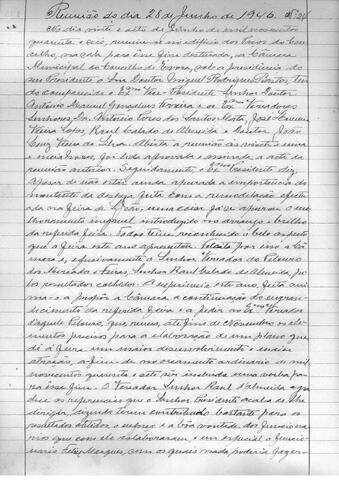 Reunião do dia 28 de Junho de 1946.
No dia vinte e oito de Junho de mil novecentos
quarenta e seis, reuniu-se no edifício dos Paços do Con-
celho, na sala para esse fim destinada, a Câmara
Municipal do Concelho de Évora, sob a presidência do
seu Presidente o Sr. Doutor Miguel Rodrigues Bastos, ten-
do comparecido o Exmo Vice-Presidente Senhor Doutor
António Manuel Gonçalves Ferreira e os Exmos Vereadores
Senhores Dr. António dos Santos Mata, José
Vieira Lopes, Raul Calado de Almeida e Doutor João
Luiz Vieira da Silva. Aberta a reunião às vinte e uma
e meia horas, foi lida aprovada e assinada a acta da
reunião anterior. Seguidamente, o Exmo Presidente diz:
Apesar de não estar ainda apurada a importância do
montante da despesa feita com a remodelação efectu-
ada na Feira de S. João,
melhoramento introduzido no arranjo e brilho
da referida feira. Todos teem reconhecido o belo aspecto
que a feira este ano apresentou. Felicito por isso a Câ-
mara e, especialmente o Senhor Vereador do Pelouro
dos Mercados e Feiras, Senhor Raul Calado de Almeida, pe-
los resultados colhidos. A experiência este ano feita ani-
ma-o a propôr à Câmara a continuação do engran-
decimento da referida feira e a pedir ao Exmo Vereador
daquele Pelouro, que reuna, até fins de Novembro os ele-
mentos precisos para a elaboração de um plano que
dê à feira um maior desenvolvimento e
a-fim-de no orçamento ordinário de mil
novecentos quarenta e sete ser incluída uma verba pa-
ra esse fim. O Vereador Senhor Raul d'Almeida agra-
dece as referências que o Senhor Presidente acaba de lhe
dirigir, dizendo terem contribuído bastante para os
resultados obtidos o esforço e a boa vontade dos funcioná-
rios que com ele colaboraram, e em especial o funcio-
nário Felix Marques, sem os quais nada poderia fazer-